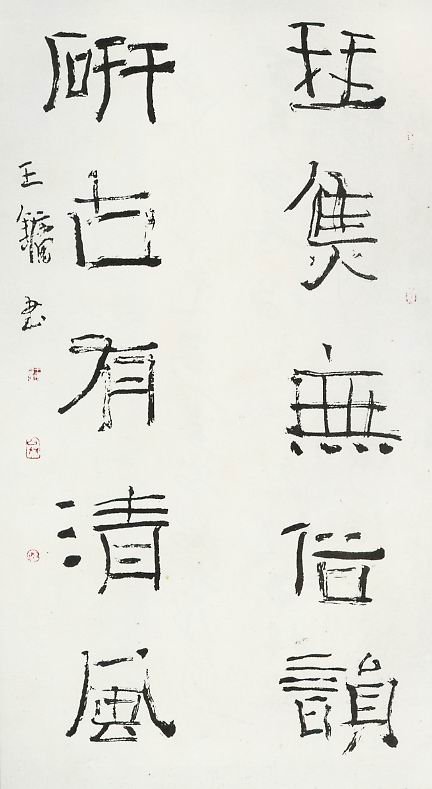 雋無俗韻
研古有清風
王鏞書